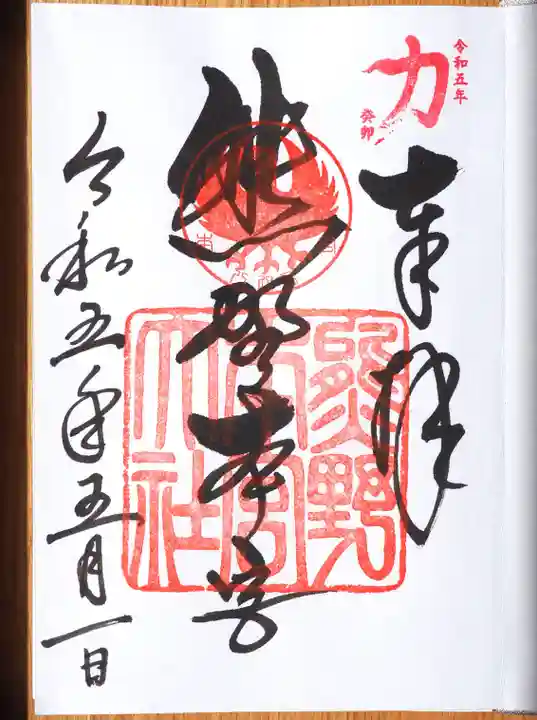 令和五年
癸卯
力
奉拝
熊野本宮
熊野
本宮
大社
令和五年五月一日